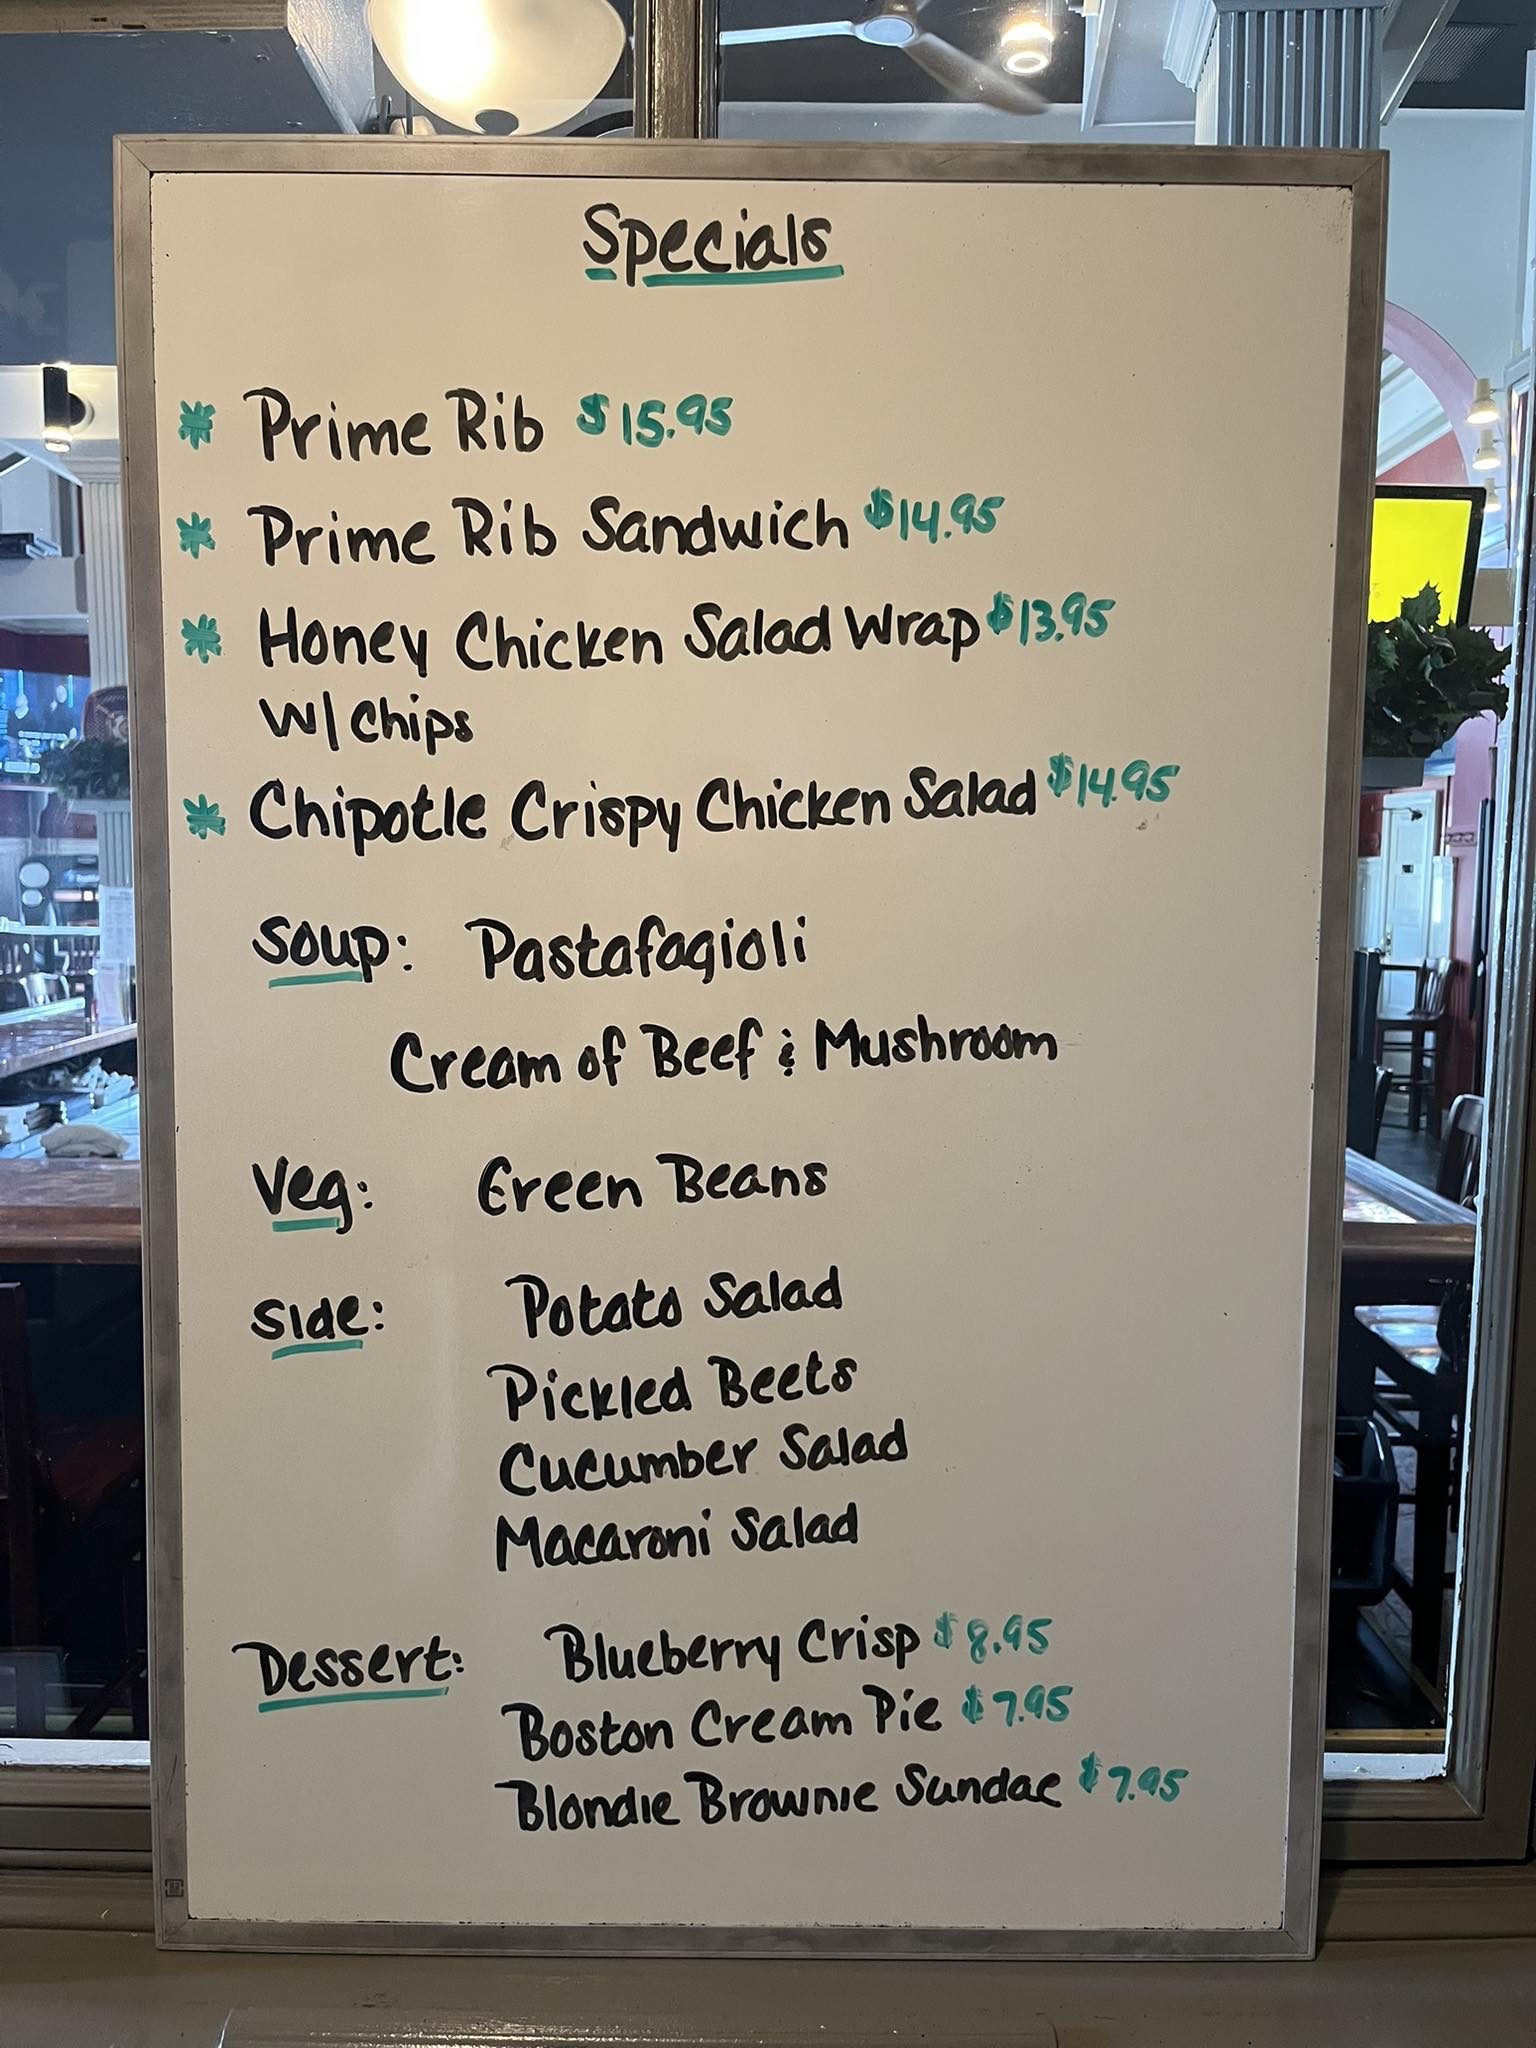 Specials
* Prime Rib $15.95
* Prime Rib Sandwich $14.95
* Honey Chicken Salad Wrap $13.95
W/ Chips
* Chipotle Crispy Chicken Salad $14.95
Soup: Pastafagioli
Cream of Beef & Mushroom
Veg: Green Beans
Side: Potato Salad
Pickled Beets
Cucumber Salad
Macaroni Salad
Dessert: Blueberry Crisp $8.95
Boston Cream Pie $7.95
Blondie Brownie Sundae $7.95